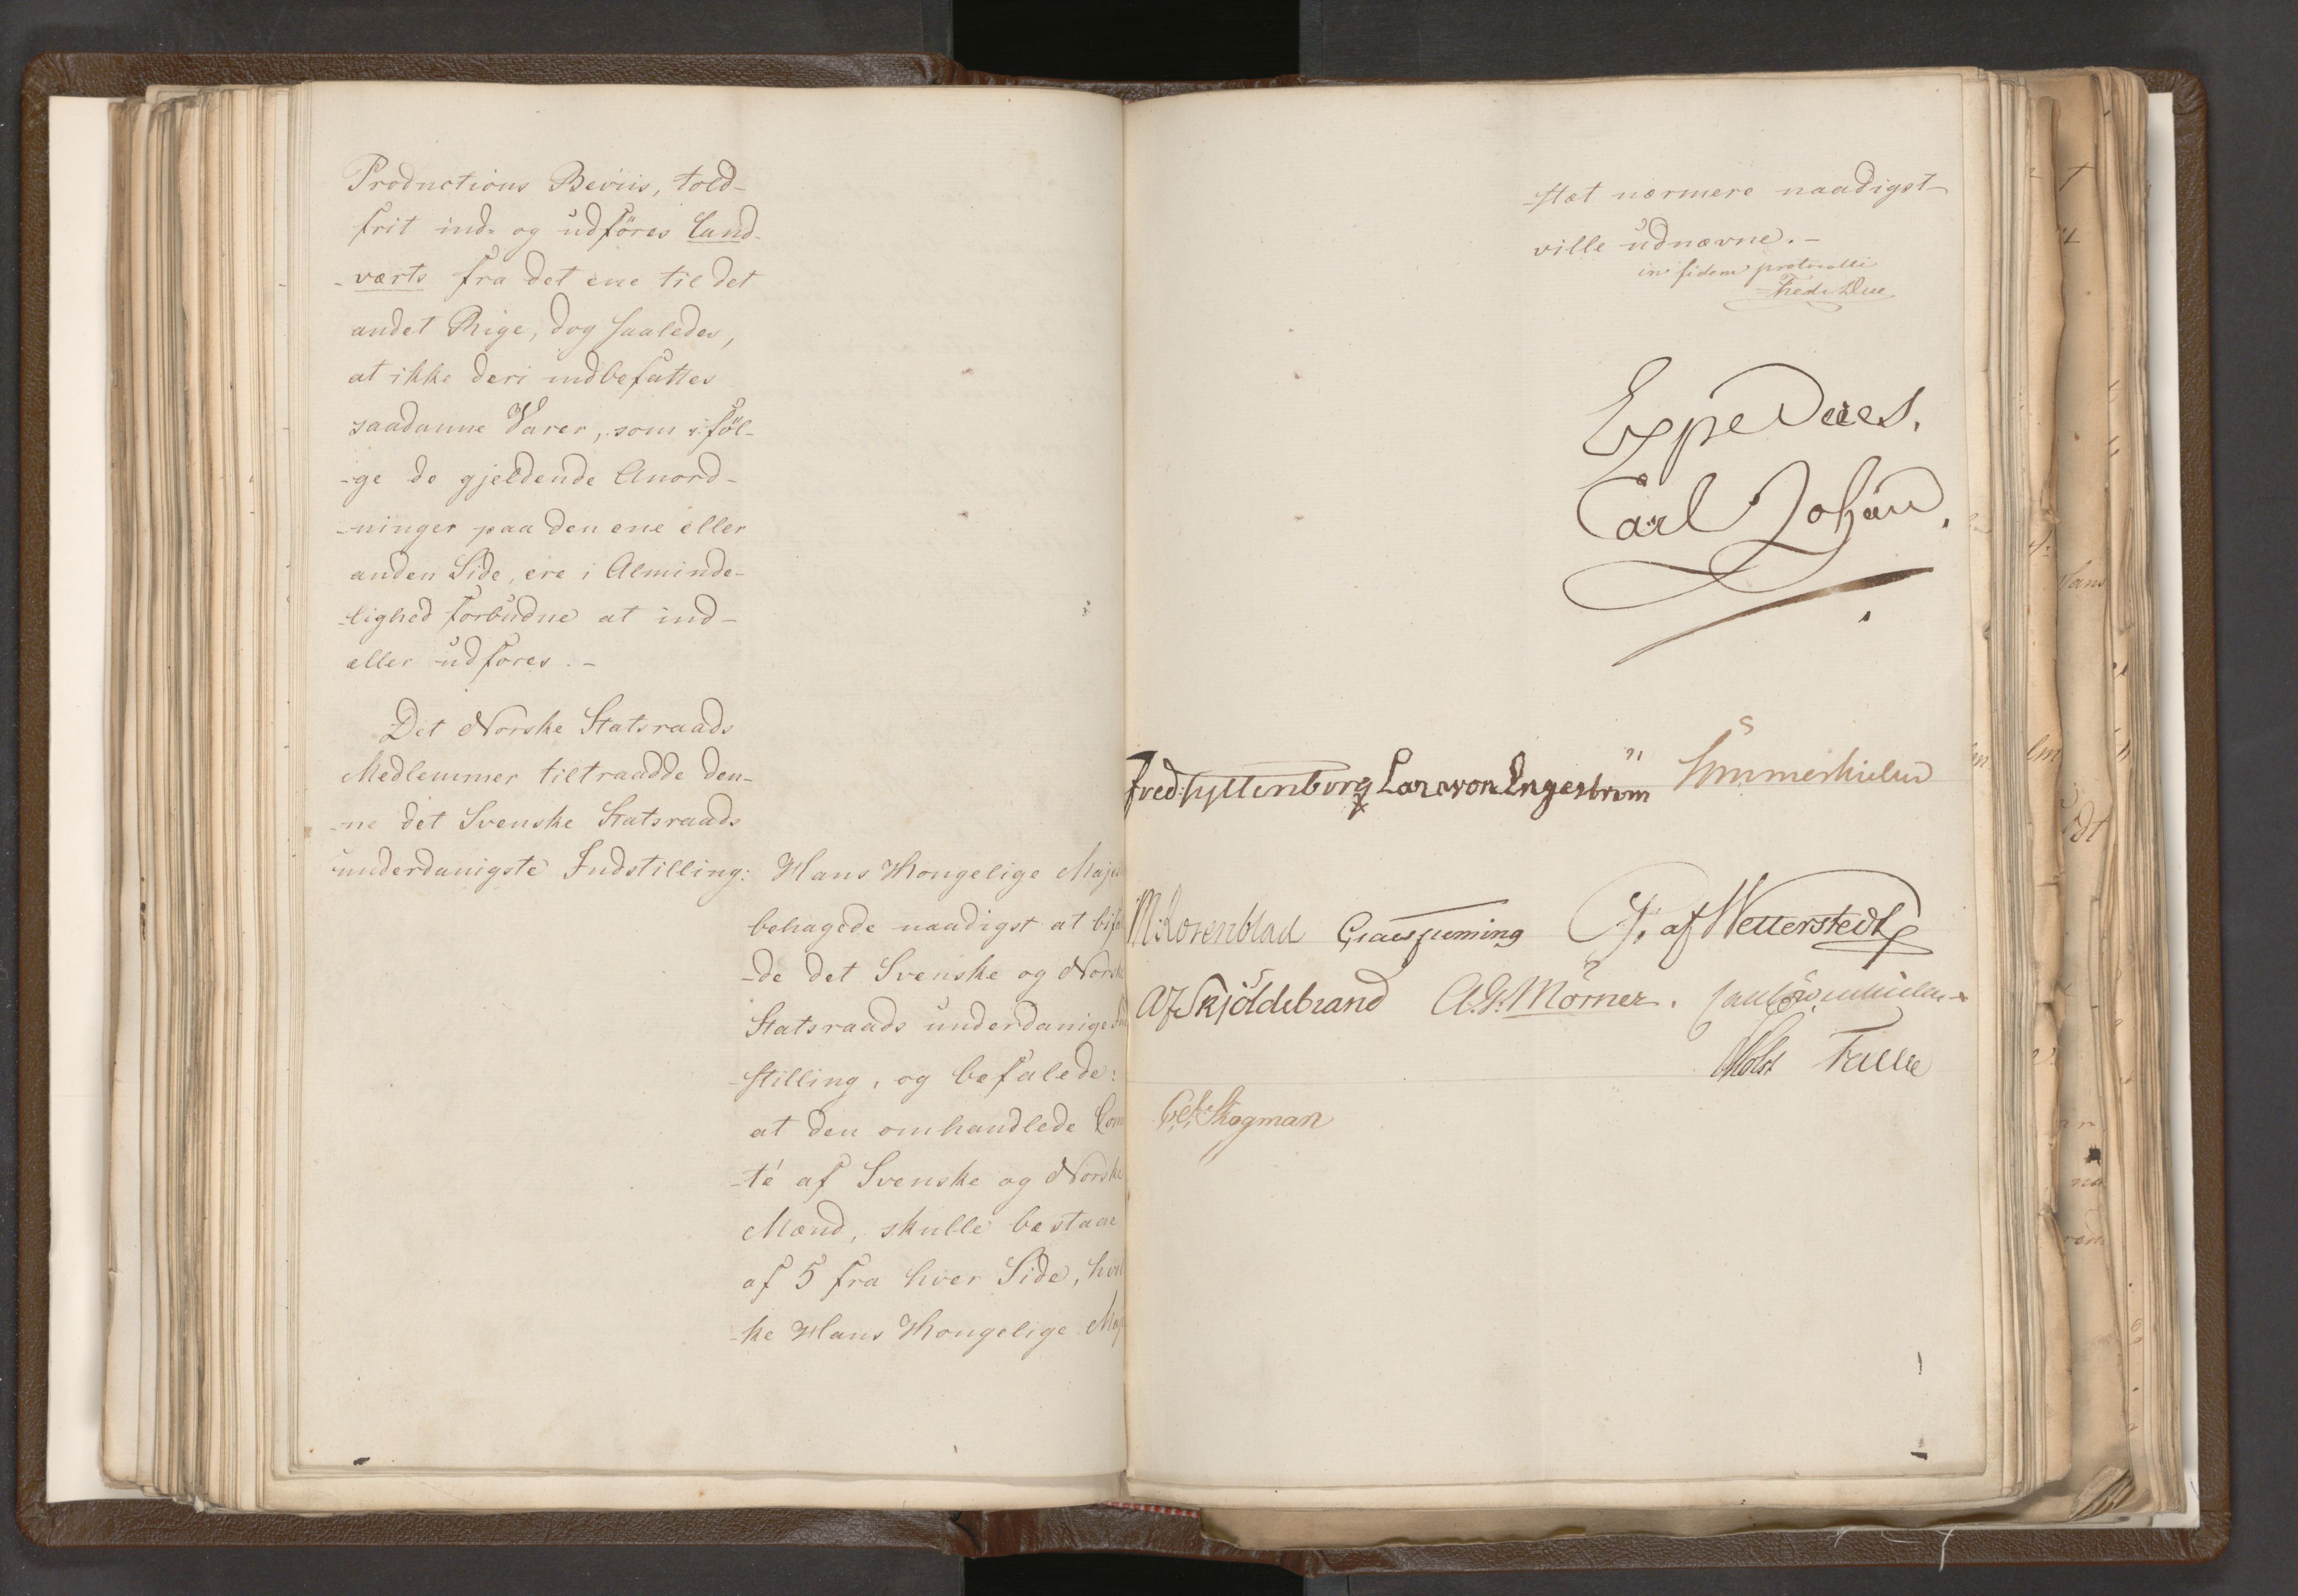 Productions Beviis, told-
frit ind- og udföres land-
-værts fra det ene til det
andet Rige, dog saaledes,
at ikke deri indbefattes
saadanne Varer, som iföl-
-ge de gjeldende Anord-
-ninger paa den ene eller
anden Side, ere i Alminde-
-lighed forbudne at ind-
eller udföres. -
Det Norske Statsraads
Medlemmer tiltraadde den-
-ne det Svenske Statsraads
underdanigste Indstilling:
Hans Kongelige Maje
behagede naadigst at bifal
-de det Svenske og Norske
Statsraads underdanige Ind
-stilling, og befalede:
at den omhandlede Com
-té af Svenske og Norske
Mænd, skulle bestaae
af 5 fra hver Side, hvil
-ke Hans Kongelige Maj
-stæt nærmere naadigst
ville udnævne. -
in fidem protocolli
Fred. Due
Expederes.
Carl Johan.
Fred Gyllenborg Lars von Engeström Sommerhielm
M. Rosenblad Claes Fleming G. af Wetterstedt
Af Skjöldebrand A. G. Mörner.
Holst Falbe
C. D. Skogman